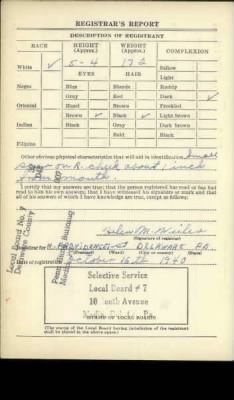 REGISTRAR'S REPORT
DESCRIPTION OF REGISTRANT
RACE HEIGHT (Approx.) WEIGHT (Approx.) COMPLEXION
White ✓ 5-4 172 Sallow
Light
EYES HAIR
Negro Blue Blonde Ruddy
Gray Red Dark ✓
Oriental Hazel Brown Freckled
Brown ✓ Black ✓ Light brown
Indian Black Gray Dark brown
Bald Black
Filipino
Other obvious physical characteristics that will aid in identification Small
scar on R. cheek about 1 inch
from mouth.
I certify that my answers are true; that the person registered has read or has had
read to him his own answers; that I have witnessed his signature or mark and that
all of his answers of which I have knowledge are true, except as follows:
Helen M.
(Signature of registrar)
Registrar for DELAWARE PA.
Date of registration October 16th 1940
Local Board No. 7
Delaware County
Selective Service
Local Board #7
10 Tenth Avenue
(STAMP OF LOCAL BOARD)
(The stamp of the Local Board having jurisdiction of the registrant
shall be placed in the above space.)